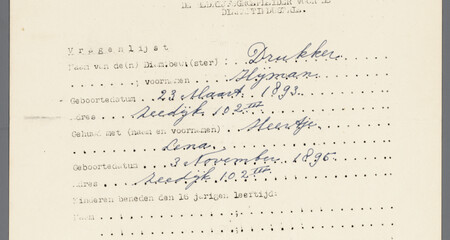 DE
V r a g e n l i j s t
Naam van de(n) Diam.bew.(ster) : Drukker
; voornamen : Hijman
Geboortedatum . 23 Maart 1893
Adres . Zeedijk 102 III
Gehuwd met (naam en voornamen) Heertje
Lena
Geboortedatum . 3 November 1895
Adres . Zeedijk 102 III
Kinderen beneden den 16 jarigen leeftijd:
Naam